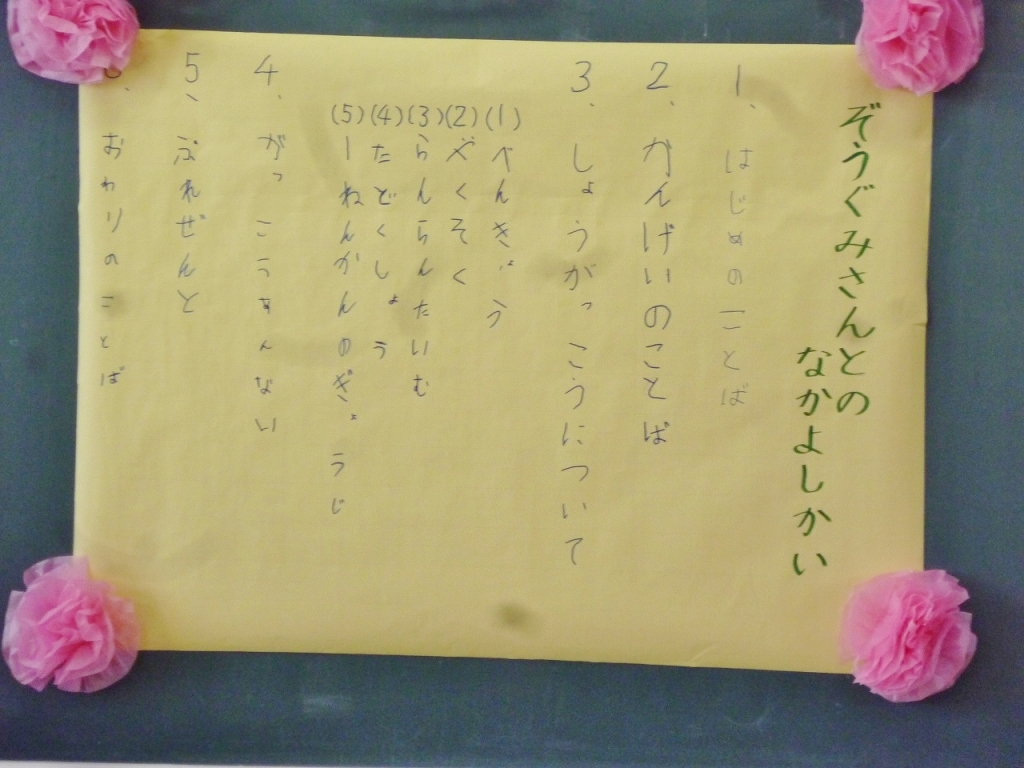 ぞうぐみさんとの
なかよしかい
1、はじめのことば
2、かんげいのことば
3、しょうがっこうについて
(1)べんきょう
(2)やくそく
(3)らんらんたいむ
(4)たどくしょう
(5)1ねんかんのぎょうじ
4、がっこうあんない
5、ぷれぜんと
6、おわりのことば